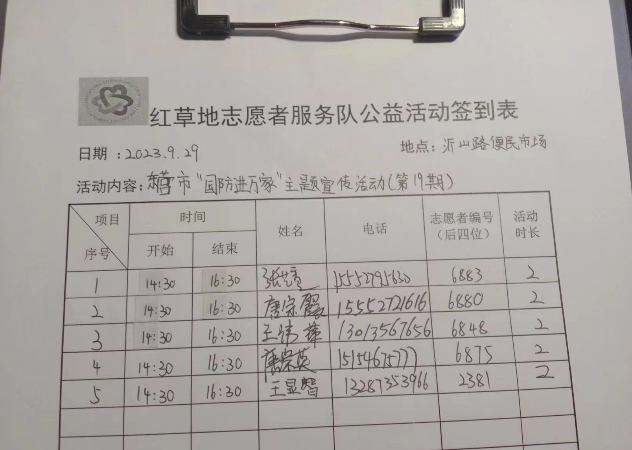 红草地志愿者服务队公益活动签到表
日期:2023.9.29 地点:沂山路便民市场
活动内容: 市"国防进万家"主题宣传活动(第19期)
项目 时间 姓名 电话 志愿者编号 活动
序号 开始 结束 (后四位) 时长
1 14:30 16:30 张 6883 2
2 14:30 16:30 唐宗霞 15552721616 6880 2
3 14:30 16:30 王 13013567656 6848 2
4 14:30 16:30 唐宗英 15154675777 6875 2
5 14:30 16:30 王显智 13287353966 2381 2